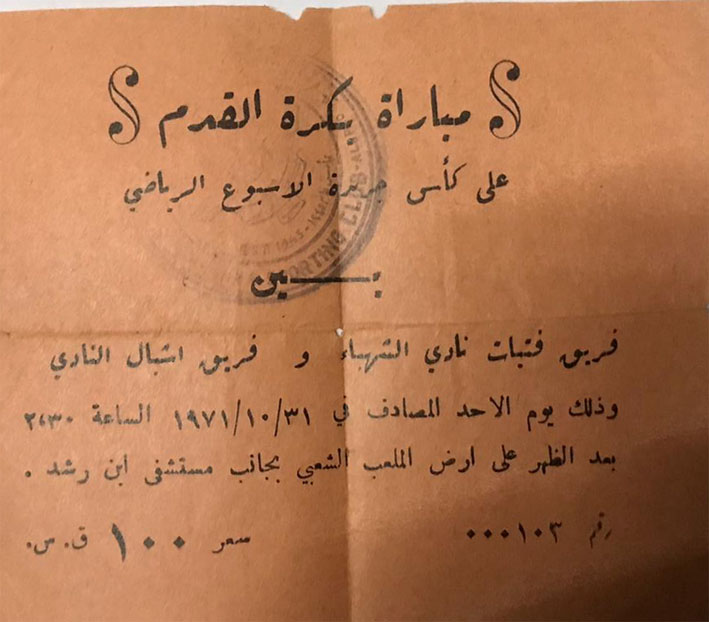 مباراة بكرة القدم
على كأس جريدة الاسبوع الرياضي
بين
فريق فتيات نادي الشهباء و فريق اشبال النادي
وذلك يوم الاحد المصادف في ١٩٧١/١٠/٣١ الساعة ٢،٣٠
بعد الظهر على ارض الملعب الشعبي بجانب مستشفى ابن رشد .
رقم ٠٠٠١٠٣ سعر ١٠٠ ق.س.
SPORTING CLUB